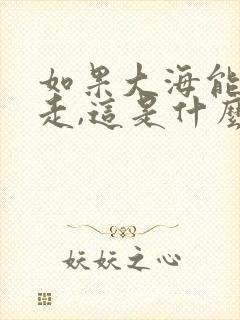 如果大海能
走,這是什麼
妖妖之心